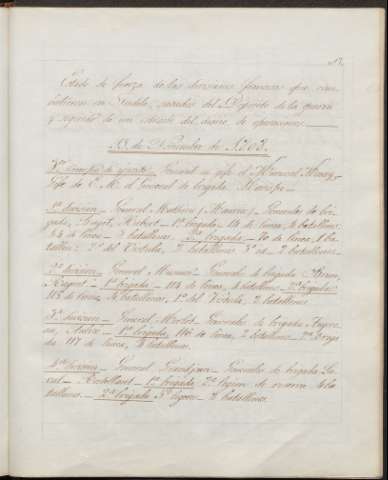 Estado de fuerza de las divisiones francesas que com-
batieron en Tudela, sacados del Depósito de la guerra
y seguido de un extracto del diario de operaciones.
de Noviembre de 1808.
3er cuerpo de ejército General en jefe el Mariscal Moncey
Gefe de E. M. el General de brigada Harispe
1ª division General Mathieu (Maurice) Generales de bri-
gada, Habert 1ª brigada 14 de linea, 4 batallones
44 de linea 3 batallones 2ª brigada 70 de linea 1 ba-
tallon: 2º del Vistula, 2 batallones 3º id. 2 batallones.
2ª division General Musnier Generales de brigada
1ª brigada 114 de linea, 4 batallones 2ª brigada
115 de linea 4 batallones, 1º del Vistula, 2 batallones.
3ª division General Morlot Generales de brigada
1ª brigada, 116 de linea, 2 batallones 2ª briga-
da 117 de linea, batallones.
4ª division General Grandjean Generales de brigada La-
val 1ª brigada 2ª legion de reserva 4 ba-
tallones. 2ª brigada 5º ligero batallones